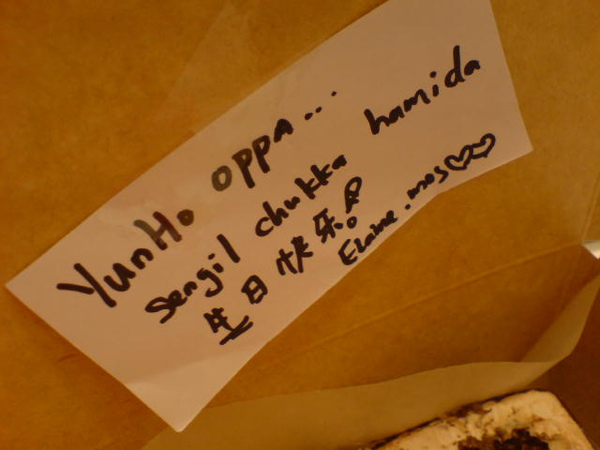 YunHo oppa...
sengil chukka hamida
生日快乐!
Elaine.mos♡♡